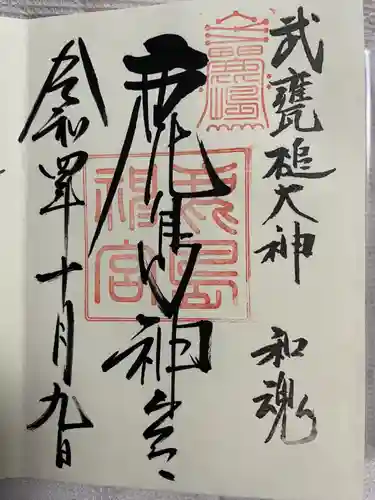 武甕槌大神 和魂
鹿島神宮
令和四年十月九日
鹿島
神宮